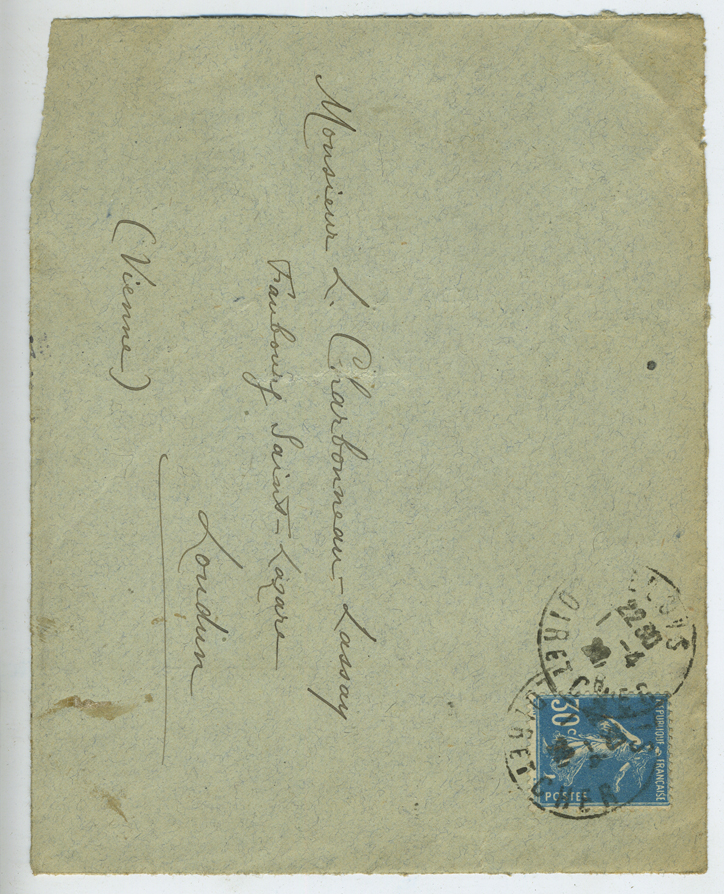 Monsieur L. Charbonneau-Lassay
Faubourg Saint-Lazare
Loudun
(Vienne)
22 30
-4
OIR ET C
REPUBLIQUE FRANÇAISE
30 c
POSTES
ET CHER